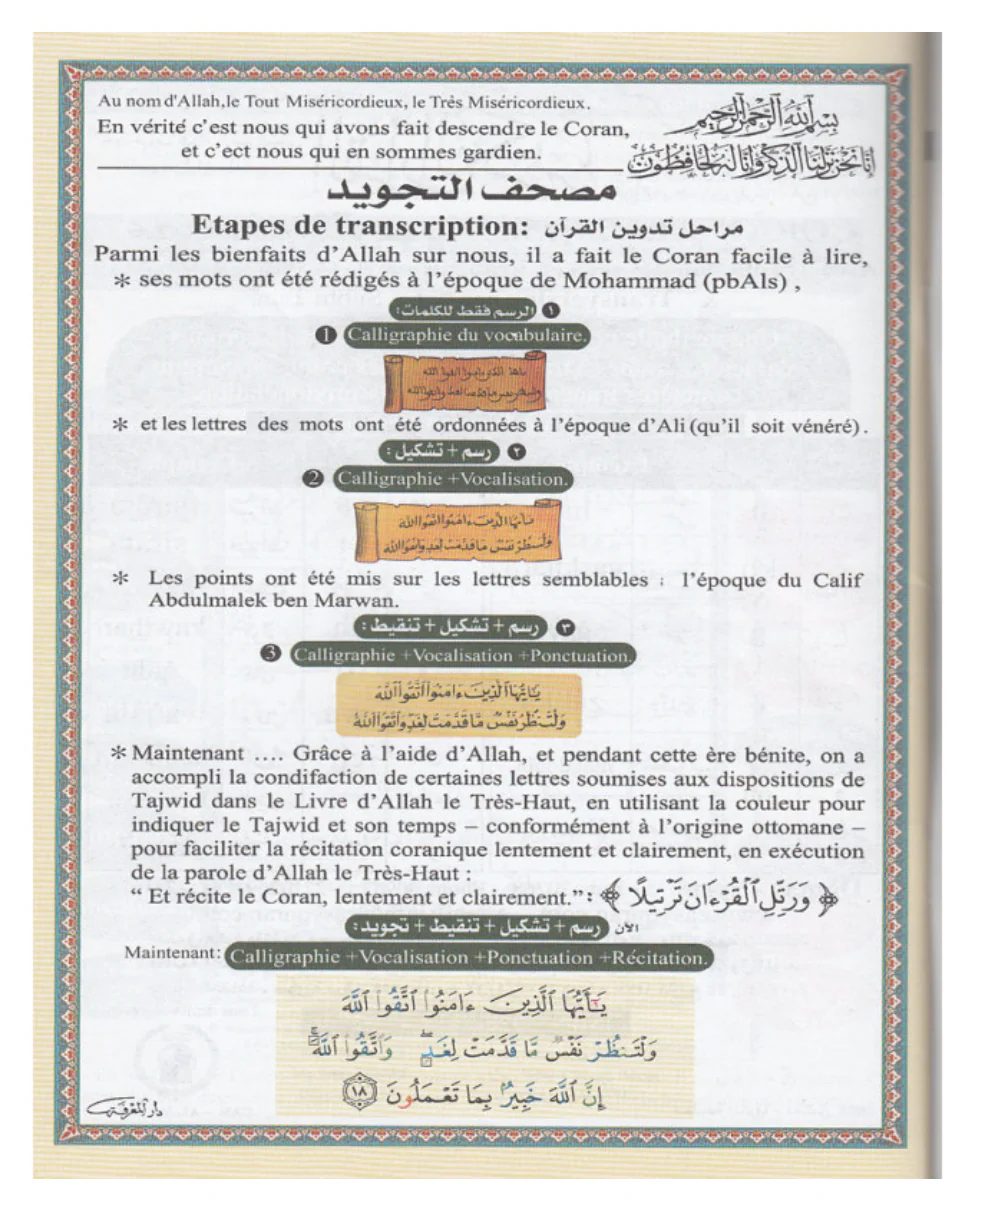 Au nom d'Allah,le Tout Miséricordieux, le Très Miséricordieux.
بِسْمِ اللَّهِ الرَّحْمَٰنِ الرَّحِيمِ
En vérité c'est nous qui avons fait descendre le Coran,
et c'ect nous qui en sommes gardien.
إِنَّا نَحْنُ نَزَّلْنَا الذِّكْرَ وَإِنَّا لَهُ لَحَافِظُونَ
مصحف التجويد
Etapes de transcription: مراحل تدوين القرآن
Parmi les bienfaits d'Allah sur nous, il a fait le Coran facile à lire,
* ses mots ont été rédigés à l'époque de Mohammad (pbAls) ,
١ الرسم فقط للكلمات:
1 Calligraphie du vocabulaire.
* et les lettres des mots ont été ordonnées à l'époque d'Ali (qu'il soit vénéré).
٢ رسم + تشكيل:
2 Calligraphie +Vocalisation.
* Les points ont été mis sur les lettres semblables : l'époque du Calif
Abdulmalek ben Marwan.
٣ رسم + تشكيل + تنقيط:
3 Calligraphie +Vocalisation +Ponctuation.
يَٰٓأَيُّهَا ٱلَّذِينَ ءَامَنُوا ٱتَّقُوا ٱللَّهَ
وَلْتَنظُرْ نَفْسٌ مَّا قَدَّمَتْ لِغَدٍ وَٱتَّقُوا ٱللَّهَ
* Maintenant .... Grâce à l'aide d'Allah, et pendant cette ère bénite, on a
accompli la condifaction de certaines lettres soumises aux dispositions de
Tajwid dans le Livre d'Allah le Très-Haut, en utilisant la couleur pour
indiquer le Tajwid et son temps – conformément à l'origine ottomane –
pour faciliter la récitation coranique lentement et clairement, en exécution
de la parole d'Allah le Très-Haut :
“ Et récite le Coran, lentement et clairement.”: ﴿ وَرَتِّلِ ٱلْقُرْءَانَ تَرْتِيلًا ﴾
الآن رسم + تشكيل + تنقيط + تجويد:
Maintenant: Calligraphie +Vocalisation +Ponctuation +Récitation.
يَٰٓأَيُّهَا ٱلَّذِينَ ءَامَنُوا۟ ٱتَّقُوا۟ ٱللَّهَ
وَلْتَنظُرْ نَفْسٌ مَّا قَدَّمَتْ لِغَدٍۖ وَٱتَّقُوا۟ ٱللَّهَۚ
إِنَّ ٱللَّهَ خَبِيرٌۢ بِمَا تَعْمَلُونَ ١٨
دار المعرفة